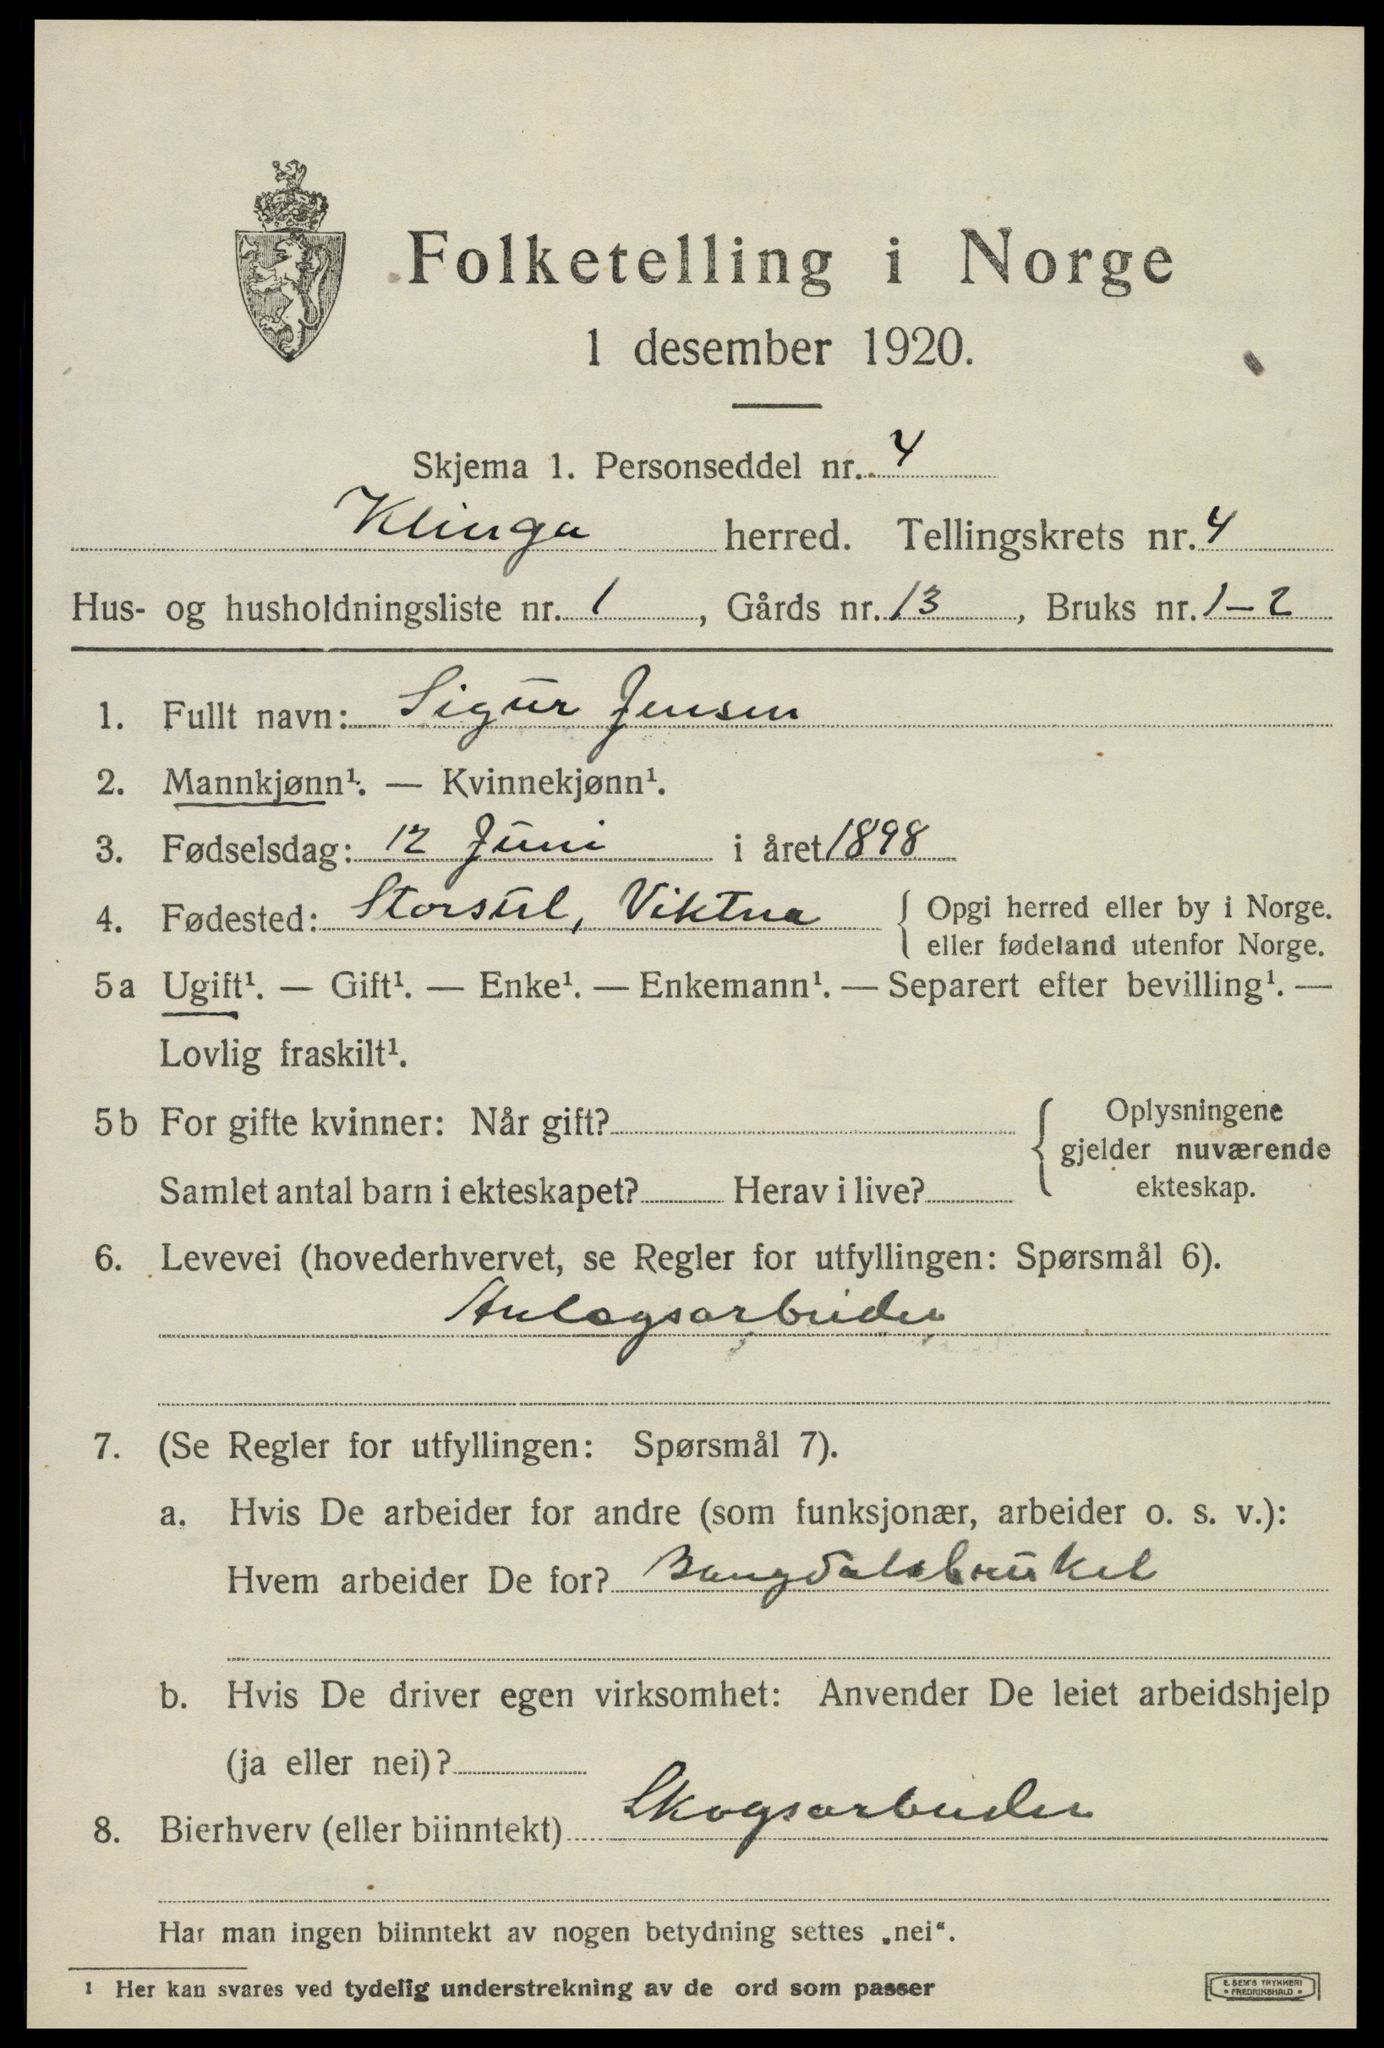 Folketelling i Norge
1 desember 1920.
Skjema 1. Personseddel nr. 4
Klinga herred. Tellingskrets nr. 4
Hus- og husholdningsliste nr. 1, Gårds nr. 13, Bruks nr. 1-2
1. Fullt navn: Sigur Jensen
2. Mannkjønn¹. — Kvinnekjønn¹.
3. Fødselsdag: 12 Juni i året 1898
4. Fødested: Viktna { Opgi herred eller by i Norge.
eller fødeland utenfor Norge.
5a Ugift¹. — Gift¹. — Enke¹. — Enkemann¹. — Separert efter bevilling¹. —
Lovlig fraskilt¹.
5b For gifte kvinner: Når gift? { Oplysningene
gjelder nuværende
Samlet antal barn i ekteskapet? Herav i live? ekteskap.
6. Levevei (hovederhvervet, se Regler for utfyllingen: Spørsmål 6).
Anlegsarbeider
7. (Se Regler for utfyllingen: Spørsmål 7).
a. Hvis De arbeider for andre (som funksjonær, arbeider o. s. v.):
Hvem arbeider De for? Bangdalsbruket
b. Hvis De driver egen virksomhet: Anvender De leiet arbeidshjelp
(ja eller nei)?
8. Bierhverv (eller biinntekt) Skogsarbeider
Har man ingen biinntekt av nogen betydning settes „nei“.
1 Her kan svares ved tydelig understrekning av de ord som passer
E. SEM'S TRYKKERI
FREDRIKSHALD